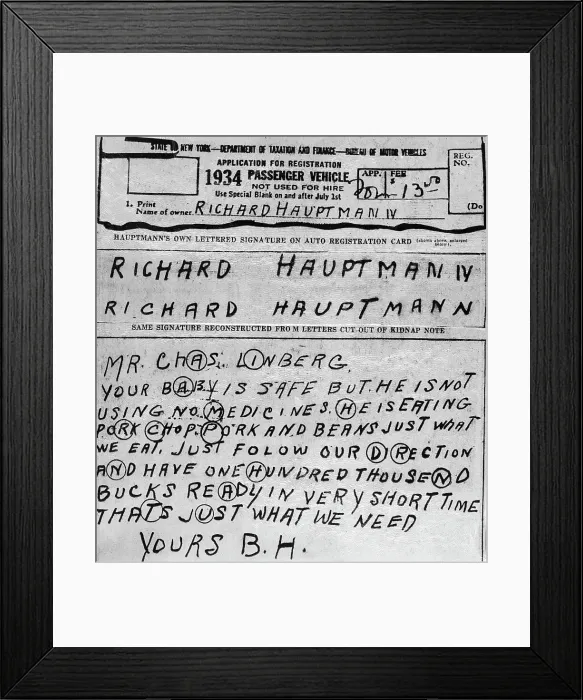 STATE OF NEW YORK—DEPARTMENT OF TAXATION AND FINANCE—BUREAU OF MOTOR VEHICLES
APPLICATION FOR REGISTRATION
1934 PASSENGER VEHICLE
NOT USED FOR HIRE
Use Special Blank on and after July 1st
APP.
FEE
$ 13
REG.
NO.
1. Print
Name of owner RICHARD HAUPTMANN
(Do
HAUPTMANN'S OWN LETTERED SIGNATURE ON AUTO REGISTRATION CARD (shown above, enlarged below).
RICHARD HAUPTMANN
RICHARD HAUPTMANN
SAME SIGNATURE RECONSTRUCTED FROM LETTERS CUT OUT OF KIDNAP NOTE
MR. CHAS. LINBERG.
YOUR BABY IS SAFE BUT HE IS NOT
USING NO MEDICINES. HE IS EATING
PORK CHOP PORK AND BEANS JUST WHAT
WE EAT. JUST FOLOW OUR DIRECTION
AND HAVE ONE HUNDRED THOUSEND
BUCKS READY IN VERY SHORT TIME
THATS JUST WHAT WE NEED
YOURS B.H.